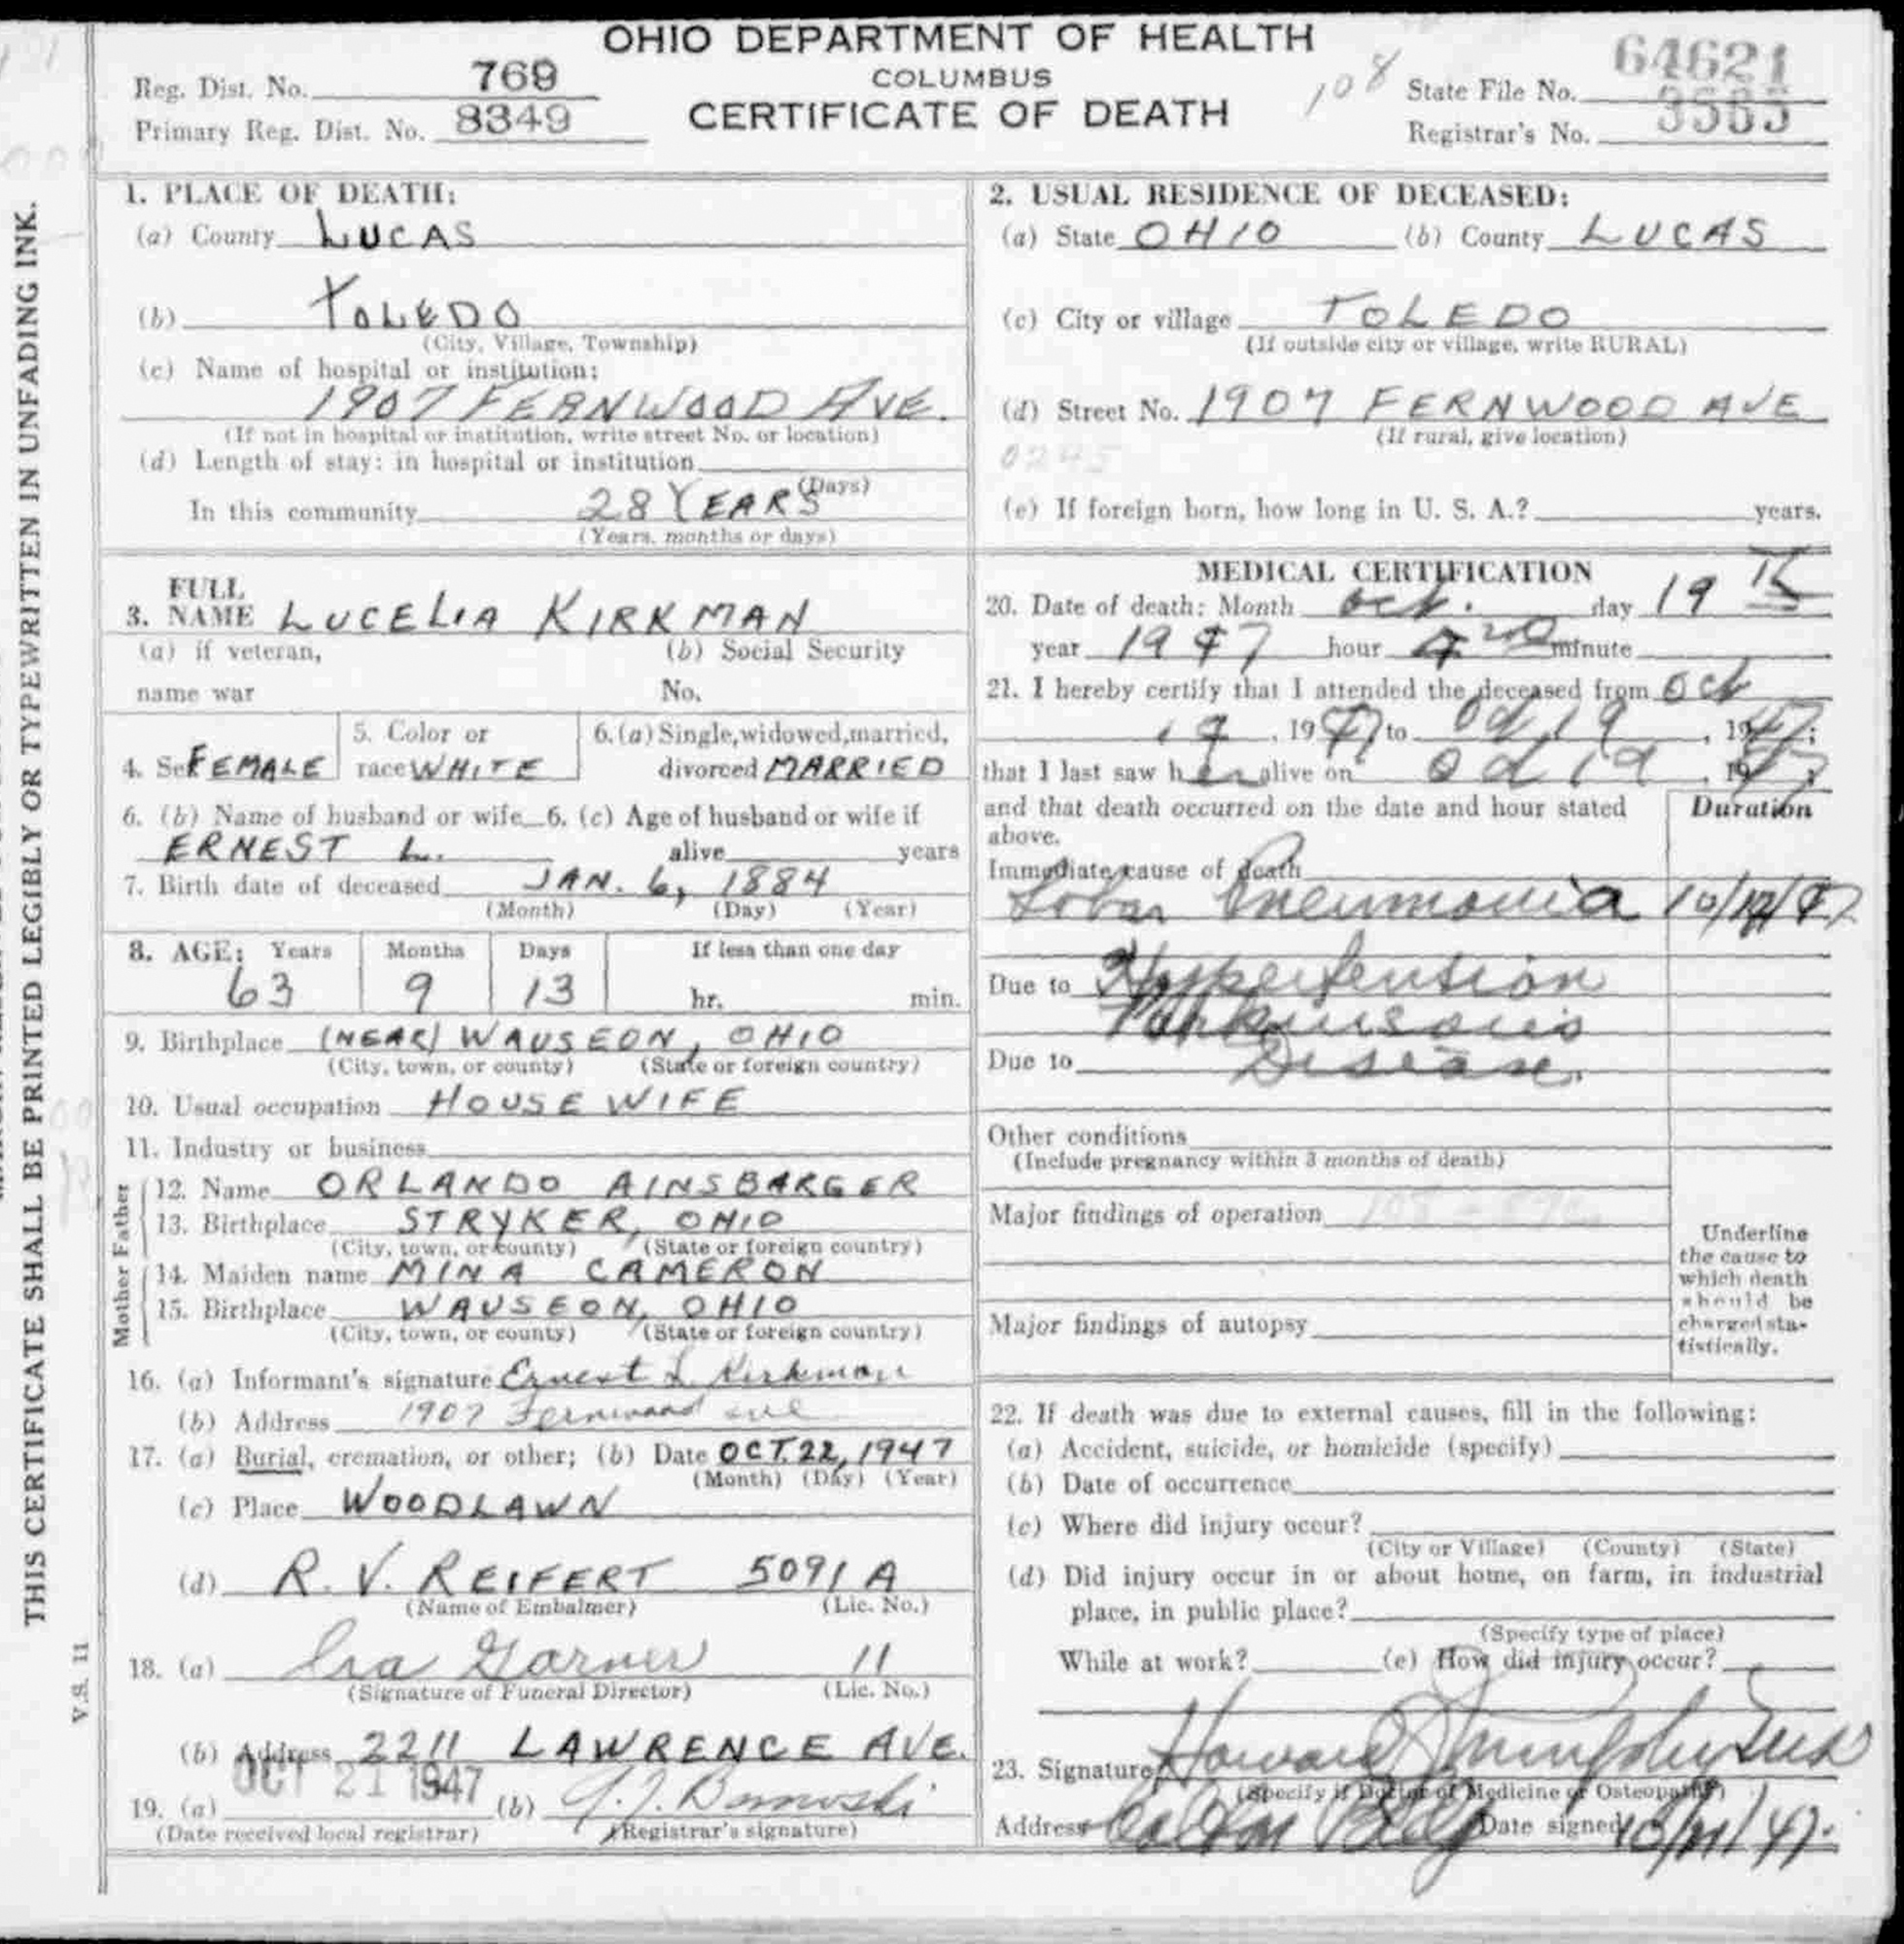 OHIO DEPARTMENT OF HEALTH
COLUMBUS
CERTIFICATE OF DEATH
108
Reg. Dist. No. 769
Primary Reg. Dist. No. 8349
State File No. 64621
Registrar's No.
THIS CERTIFICATE SHALL BE PRINTED LEGIBLY OR TYPEWRITTEN IN UNFADING INK.
V.S. 11
1. PLACE OF DEATH:
(a) County LUCAS
(b) TOLEDO
(City, Village, Township)
(c) Name of hospital or institution:
1907 FERNWOOD AVE.
(If not in hospital or institution, write street No. or location)
(d) Length of stay: in hospital or institution
(Days)
In this community 28 YEARS
(Years, months or days)
2. USUAL RESIDENCE OF DECEASED:
(a) State OHIO (b) County LUCAS
(c) City or village TOLEDO
(If outside city or village, write RURAL)
(d) Street No. 1907 FERNWOOD AVE
(If rural, give location)
0245
(e) If foreign born, how long in U. S. A.? years.
FULL
3. NAME LUCELIA KIRKMAN
(a) if veteran, (b) Social Security
name war No.
4. Sex FEMALE
5. Color or
race WHITE
6. (a) Single, widowed, married,
divorced MARRIED
6. (b) Name of husband or wife 6. (c) Age of husband or wife if
ERNEST L. alive years
7. Birth date of deceased JAN. 6, 1884
(Month) (Day) (Year)
8. AGE: Years Months Days If less than one day
63 9 13 hr. min.
9. Birthplace (NEAR) WAUSEON, OHIO
(City, town, or county) (State or foreign country)
10. Usual occupation HOUSE WIFE
11. Industry or business
Father
12. Name ORLANDO AINSBARGER
13. Birthplace STRYKER, OHIO
(City, town, or county) (State or foreign country)
Mother
14. Maiden name MINA CAMERON
15. Birthplace WAUSEON, OHIO
(City, town, or county) (State or foreign country)
16. (a) Informant's signature Ernest L Kirkman
(b) Address 1907 Fernwood ave
17. (a) Burial, cremation, or other; (b) Date OCT. 22, 1947
(Month) (Day) (Year)
(c) Place WOODLAWN
(d) R. V. REIFERT 5091 A
(Name of Embalmer) (Lic. No.)
18. (a) Ira Garner 11
(Signature of Funeral Director) (Lic. No.)
(b) Address 2211 LAWRENCE AVE.
OCT 21 1947
19. (a) (b)
(Date received local registrar) (Registrar's signature)
MEDICAL CERTIFICATION
20. Date of death: Month Oct. day 19 th
year 1947 hour minute
21. I hereby certify that I attended the deceased from Oct
1947 to Oct 19, 1947;
that I last saw her alive on Oct 19, 1947;
and that death occurred on the date and hour stated
above.
Duration
Immediate cause of death
Lobar Pneumonia
Due to Hypertension
Parkinson's
Due to Disease.
Other conditions
(Include pregnancy within 3 months of death)
Major findings of operation
Major findings of autopsy
Underline
the cause to
which death
should be
charged sta-
tistically.
22. If death was due to external causes, fill in the following:
(a) Accident, suicide, or homicide (specify)
(b) Date of occurrence
(c) Where did injury occur?
(City or Village) (County) (State)
(d) Did injury occur in or about home, on farm, in industrial
place, in public place?
(Specify type of place)
While at work? (e) How did injury occur?
23. Signature Howard
(Specify if Doctor of Medicine or Osteopathy)
Address Bldg Date signed